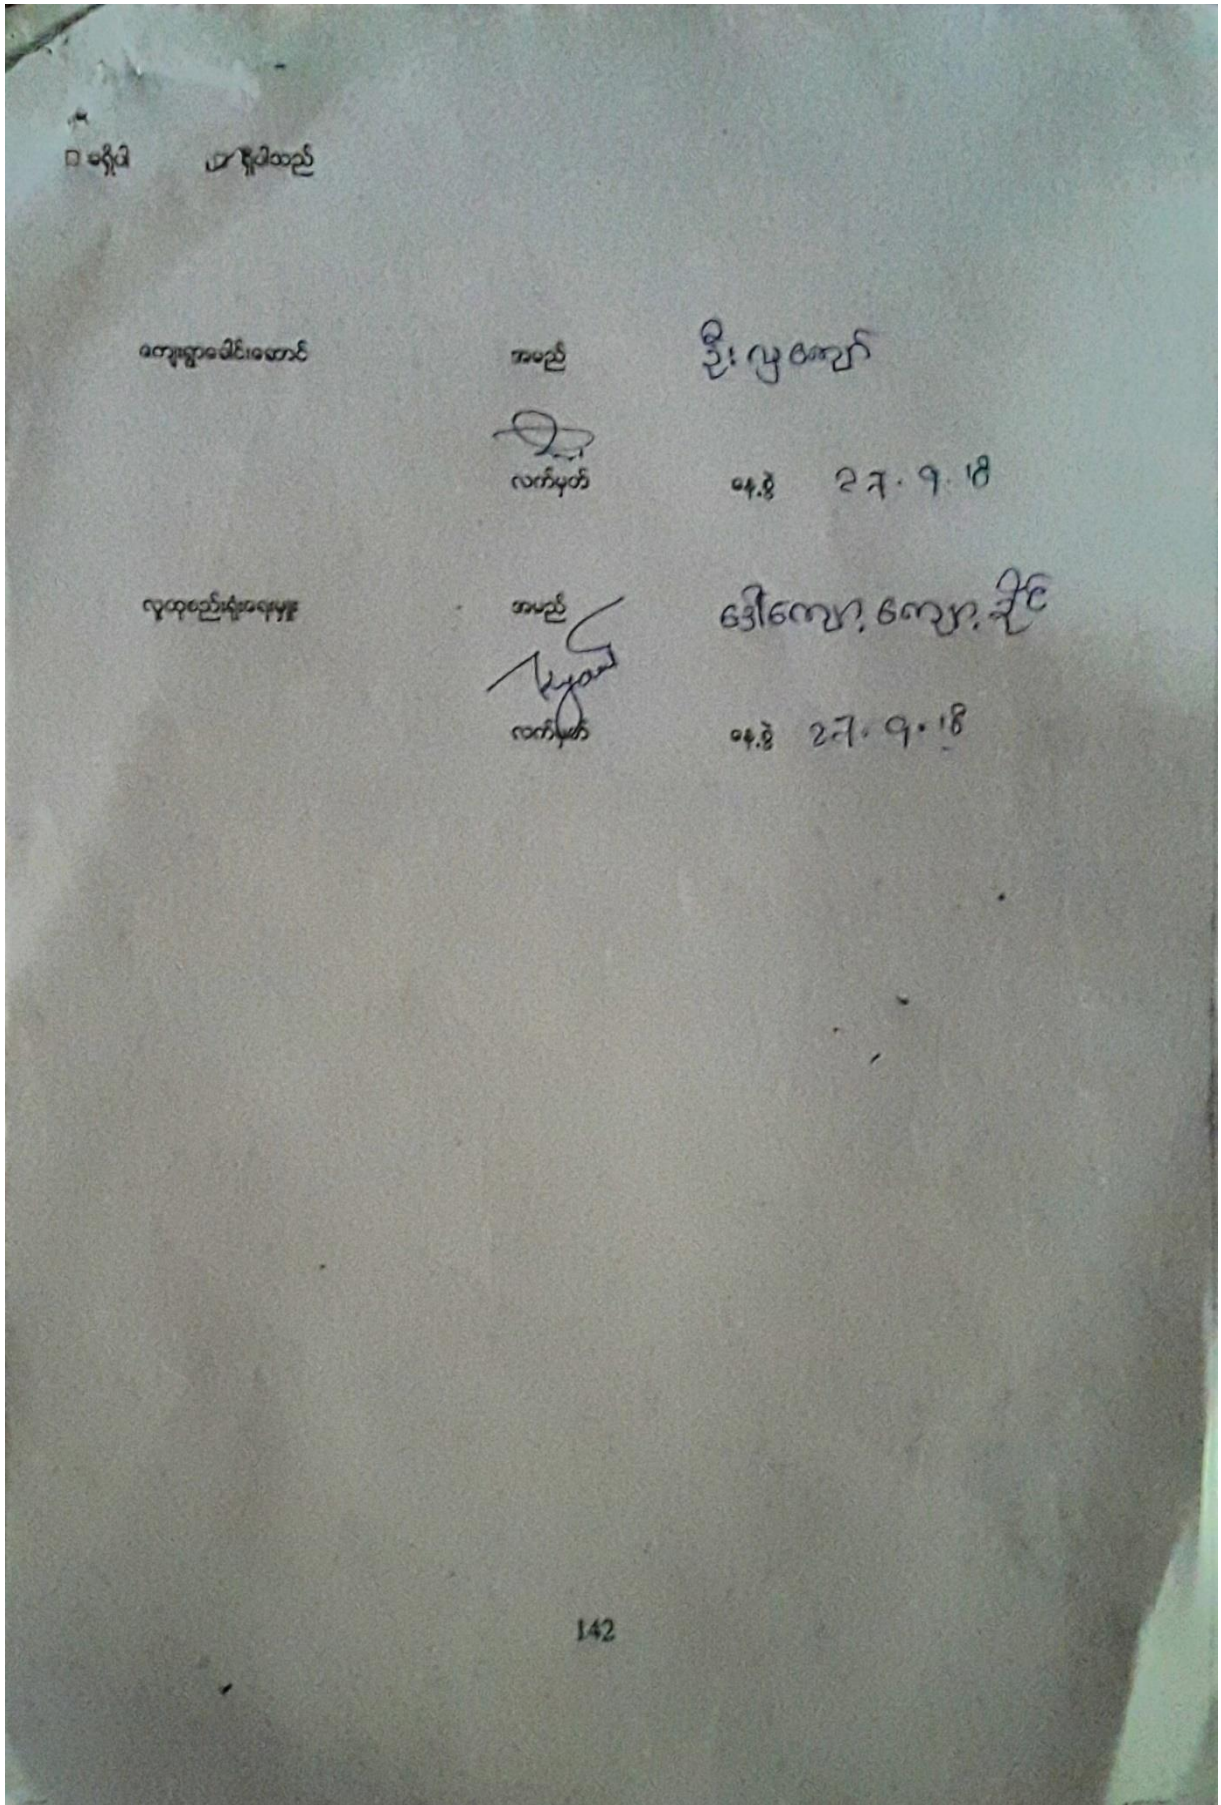 □ မရှိပါ ☑ ရှိပါသည်
ကျေးရွာခေါင်းဆောင် အမည် ဦးလှကျော်
လက်မှတ် နေ့စွဲ 27.9.18
လူထုစည်းရုံးရေးမှူး အမည် ဒေါ်ကျော့ကျော့ခိုင်
လက်မှတ် နေ့စွဲ 27.9.18
142